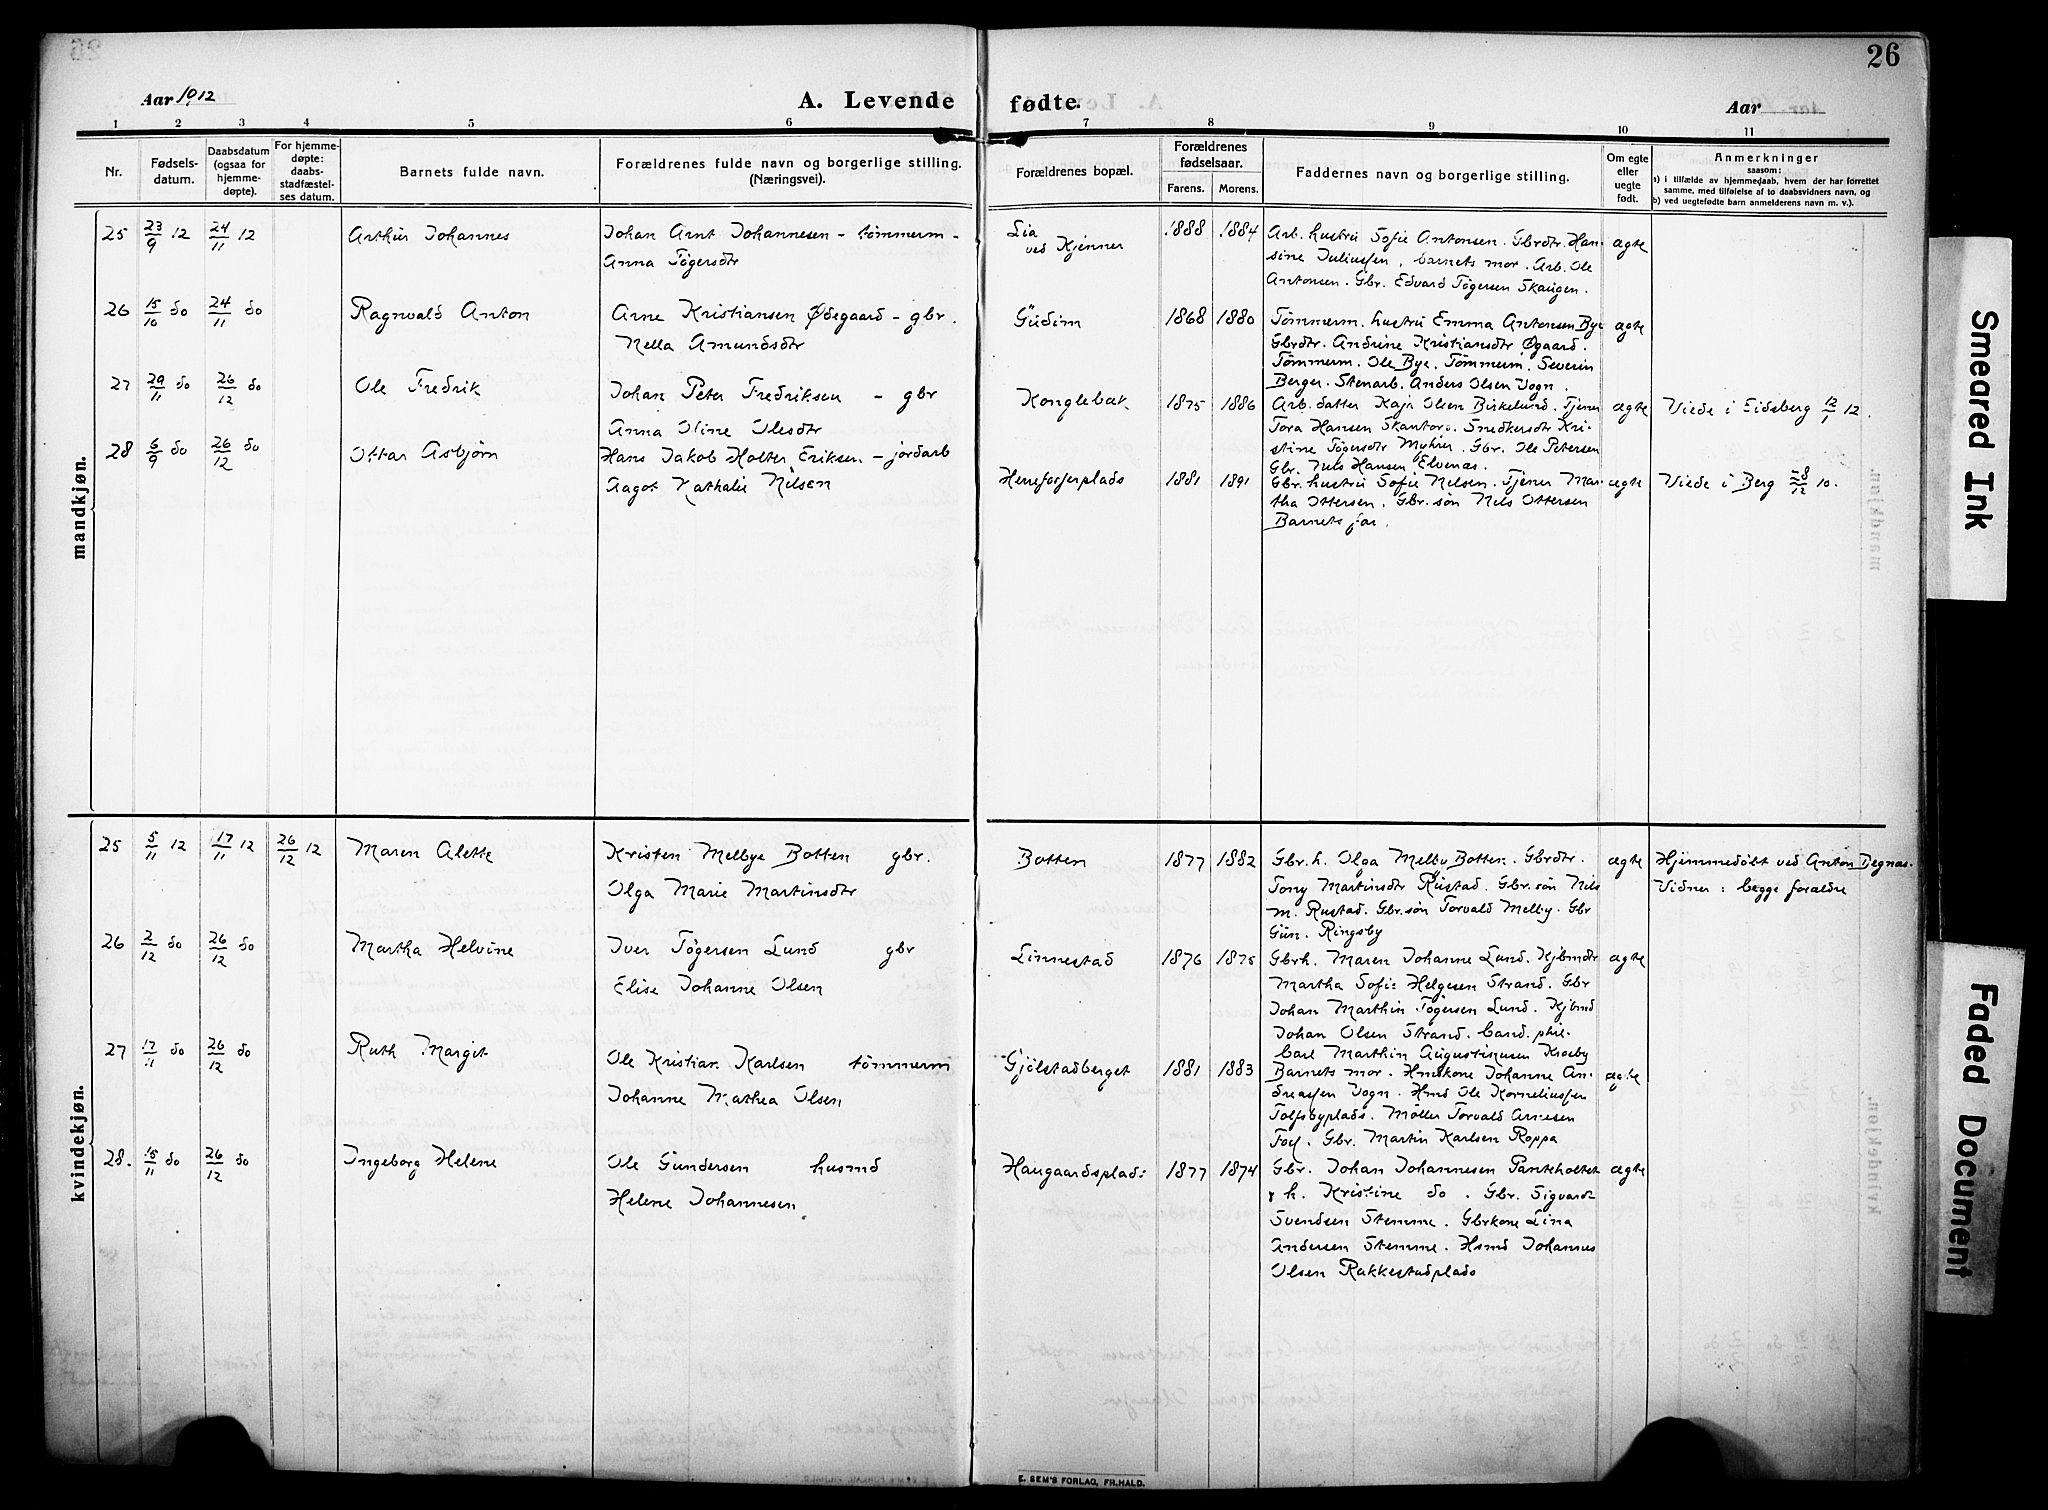 26
Aar 1912
A. Levende fødte.
Aar
1 2 3 4 5 6 7 8 9 10 11
Nr.
Fødsels-
datum.
Daabsdatum
(ogsaa for
hjemme-
døpte).
For hjemme-
døpte:
daabs-
stadfæstel-
ses datum.
Barnets fulde navn.
Forældrenes fulde navn og borgerlige stilling.
(Næringsvei).
Forældrenes bopæl.
Forældrenes
fødselsaar.
Farens. Morens.
Faddernes navn og borgerlige stilling.
Om egte
eller
uegte
født.
Anmerkninger
saasom:
a) i tilfælde av hjemmedaab, hvem der har forrettet
samme, med tilføielse af to daabsvidners navn, og
b) ved uegtefødte barn anmelderens navn m. v.).
mandkjøn.
25 23/9 12 24/11 12 Arthur Johannes
Johan Arnt Johannesen - tømmerm -
Anna Tøgersdtr
Lia
ved Kjenner
1888 1884
Arb. hustru Sofie Antonsen. Gbrdtr. Han-
sine Juliussen, barnets mor. Arb. Ole
Antonsen. Gbr. Edvard Tøgersen Skaugen.
ægte
26 15/10 do 24/11 do Ragnvald Anton
Arne Kristiansen Ødegaard - gbr.
Nella Amundsdtr
Gudim
1868 1880
Tømmerm. hustru Emma Antonsen Bye
Gbrdtr. Andrine Kristiansdtr Øgaard.
Tømmerm. Ole Bye. Tømmerm. Severin
Berger. Stenarb. Anders Olsen Vogn.
ægte
27 29/11 do 26/12 do Ole Fredrik
Johan Peter Fredriksen - gbr
Anna Oline Olesdtr
Konglebæk
1875 1886
Arb. datter Kaja Olsen Birkelund. Tjener
Tora Hansen Skantorp. Snedkersdtr Kri-
stine Tøgersdtr Myhrer. Gbr. Ole Petersen
Gbr. Nils Hansen Elvenæs.
ægte
Viede i Eidsberg 12/1 12.
28 6/9 do 26/12 do Ottar Asbjørn
Hans Jakob Holter Eriksen - jordarb
Aagot Nathalie Nilsen
1881 1891
Gbr. hustru Sofie Nilsen. Tjener Mar-
tha Ottersen. Gbr. søn Nils Ottersen
Barnets far.
ægte
Viede i Berg 28/12 10.
kvindekjøn.
25 5/11 12 17/11 12 26/12 12 Maren Alette
Kristen Melbye Botten gbr.
Olga Marie Martinsdtr
Botten
1877 1882
Gbr. h. Olga Melby Botten. Gbrdtr.
Tony Martinsdtr Rustad. Gbr. søn Nils
M. Rustad. Gbr. søn Torvald Melby. Gbr
Gun. Ringsby
ægte
Hjemmedøbt ved Anton Degnæs.
Vidner: begge forældre
26 2/12 do 26/12 do Martha Helvine
Iver Tøgersen Lund gbr
Elise Johanne Olsen
Linnestad
1876 1875
Gbrh. Maren Johanne Lund. Kjbmdtr
Martha Sofie Helgesen Strand. Gbr
Johan Marthin Tøgersen Lund. Kjbmd
Johan Olsen Strand. Cand. phil.
Carl Marthin Augustinusen Kroeby
ægte
27 17/11 do 26/12 do Ruth Margit
Ole Kristian Karlsen tømmerm
Johanne Mathea Olsen
Gjølstadberget
1881 1883
Barnets mor. Hmskone Johanne An-
dreassen Vogn. Hmd Ole Korneliussen
Tolfsbyplads. Møller Torvald Arnesen
Gbr. Martin Karlsen Roppa
ægte
28. 15/11 do 26/12 do Ingeborg Helene
Ole Gundersen husmd
Helene Johannesen
Haugaardsplads
1877 1874
Gbr. Johan Johannesen Panteholtet
& h. Kristine do. Gbr. Sigvardt
Svendsen Stemme. Gbrkone Lina
Andersen Stemme. Hsmd Johannes
Olsen Rakkestadplads
ægte
E. SEM'S FORLAG, FR.HALD.
Smeared Ink
Faded Document